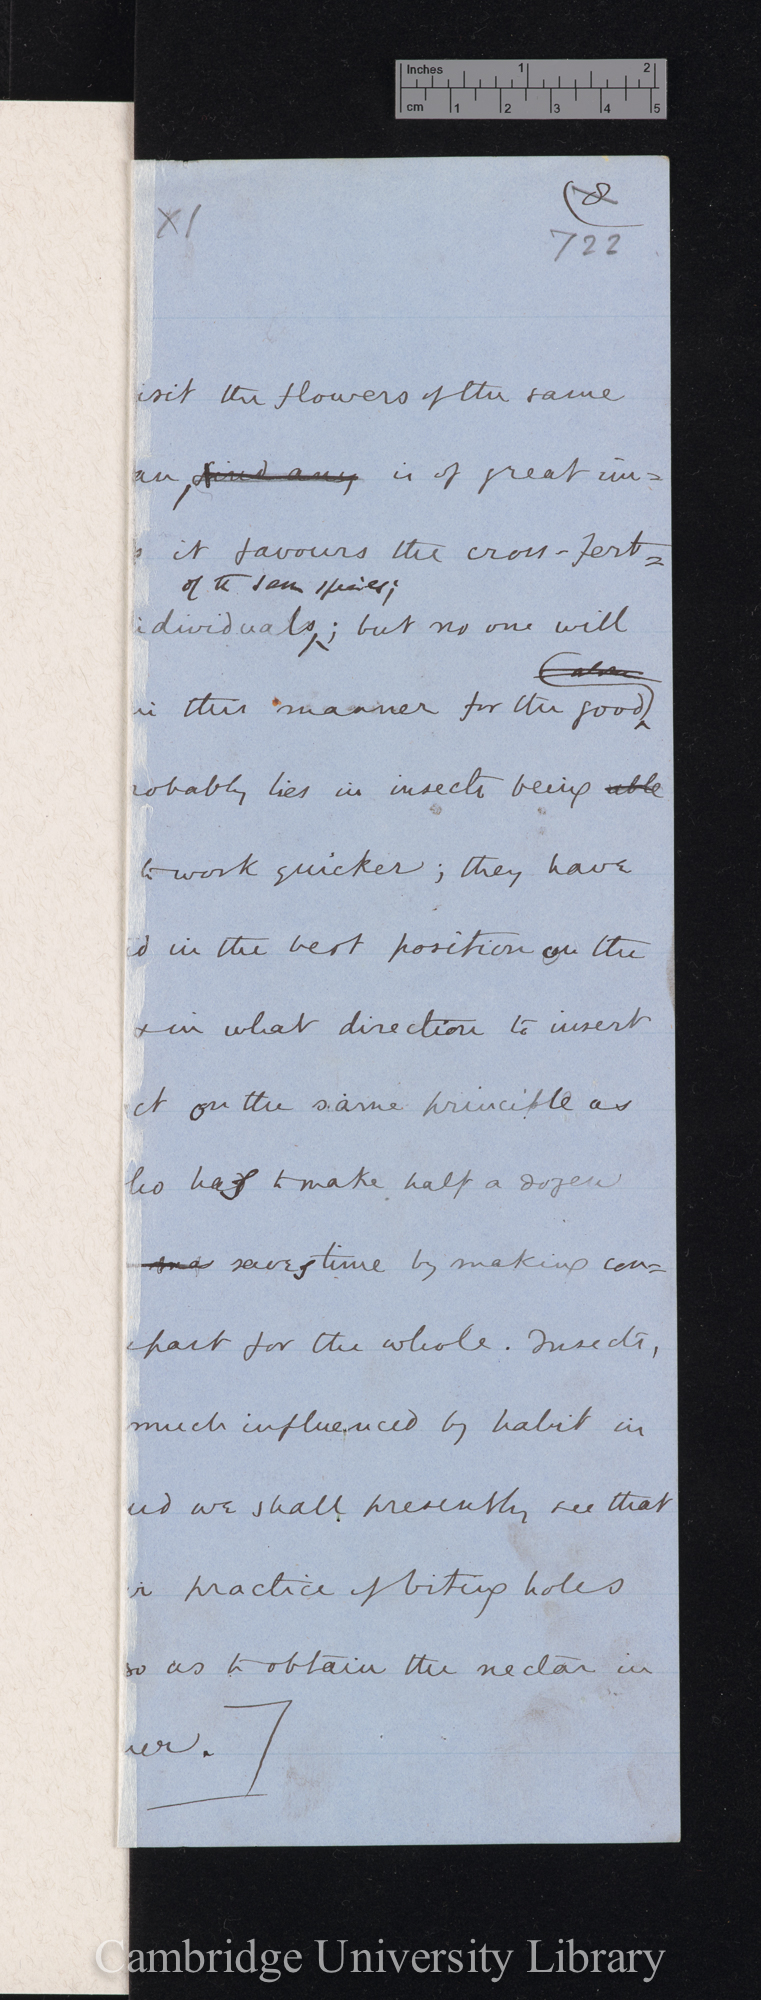 Inches 1 2
cm 1 2 3 4 5
(8
XI
722
isit the flowers of the same
an, find any is of great im=
s it favours the cross-fert=
of the same species;
dividuals,; but no one will
(alone
in this manner for the good)
robably lies in insects being able
to work quicker; they have
d in the best position on the
& in what direction to insert
ct on the same principle as
ho has to make half a dozen
saves time by making con=
part for the whole. Insects,
much influenced by habit in
nd we shall presently see that
r practice of biting holes
so as to obtain the nectar in
ner.]
Cambridge University Library